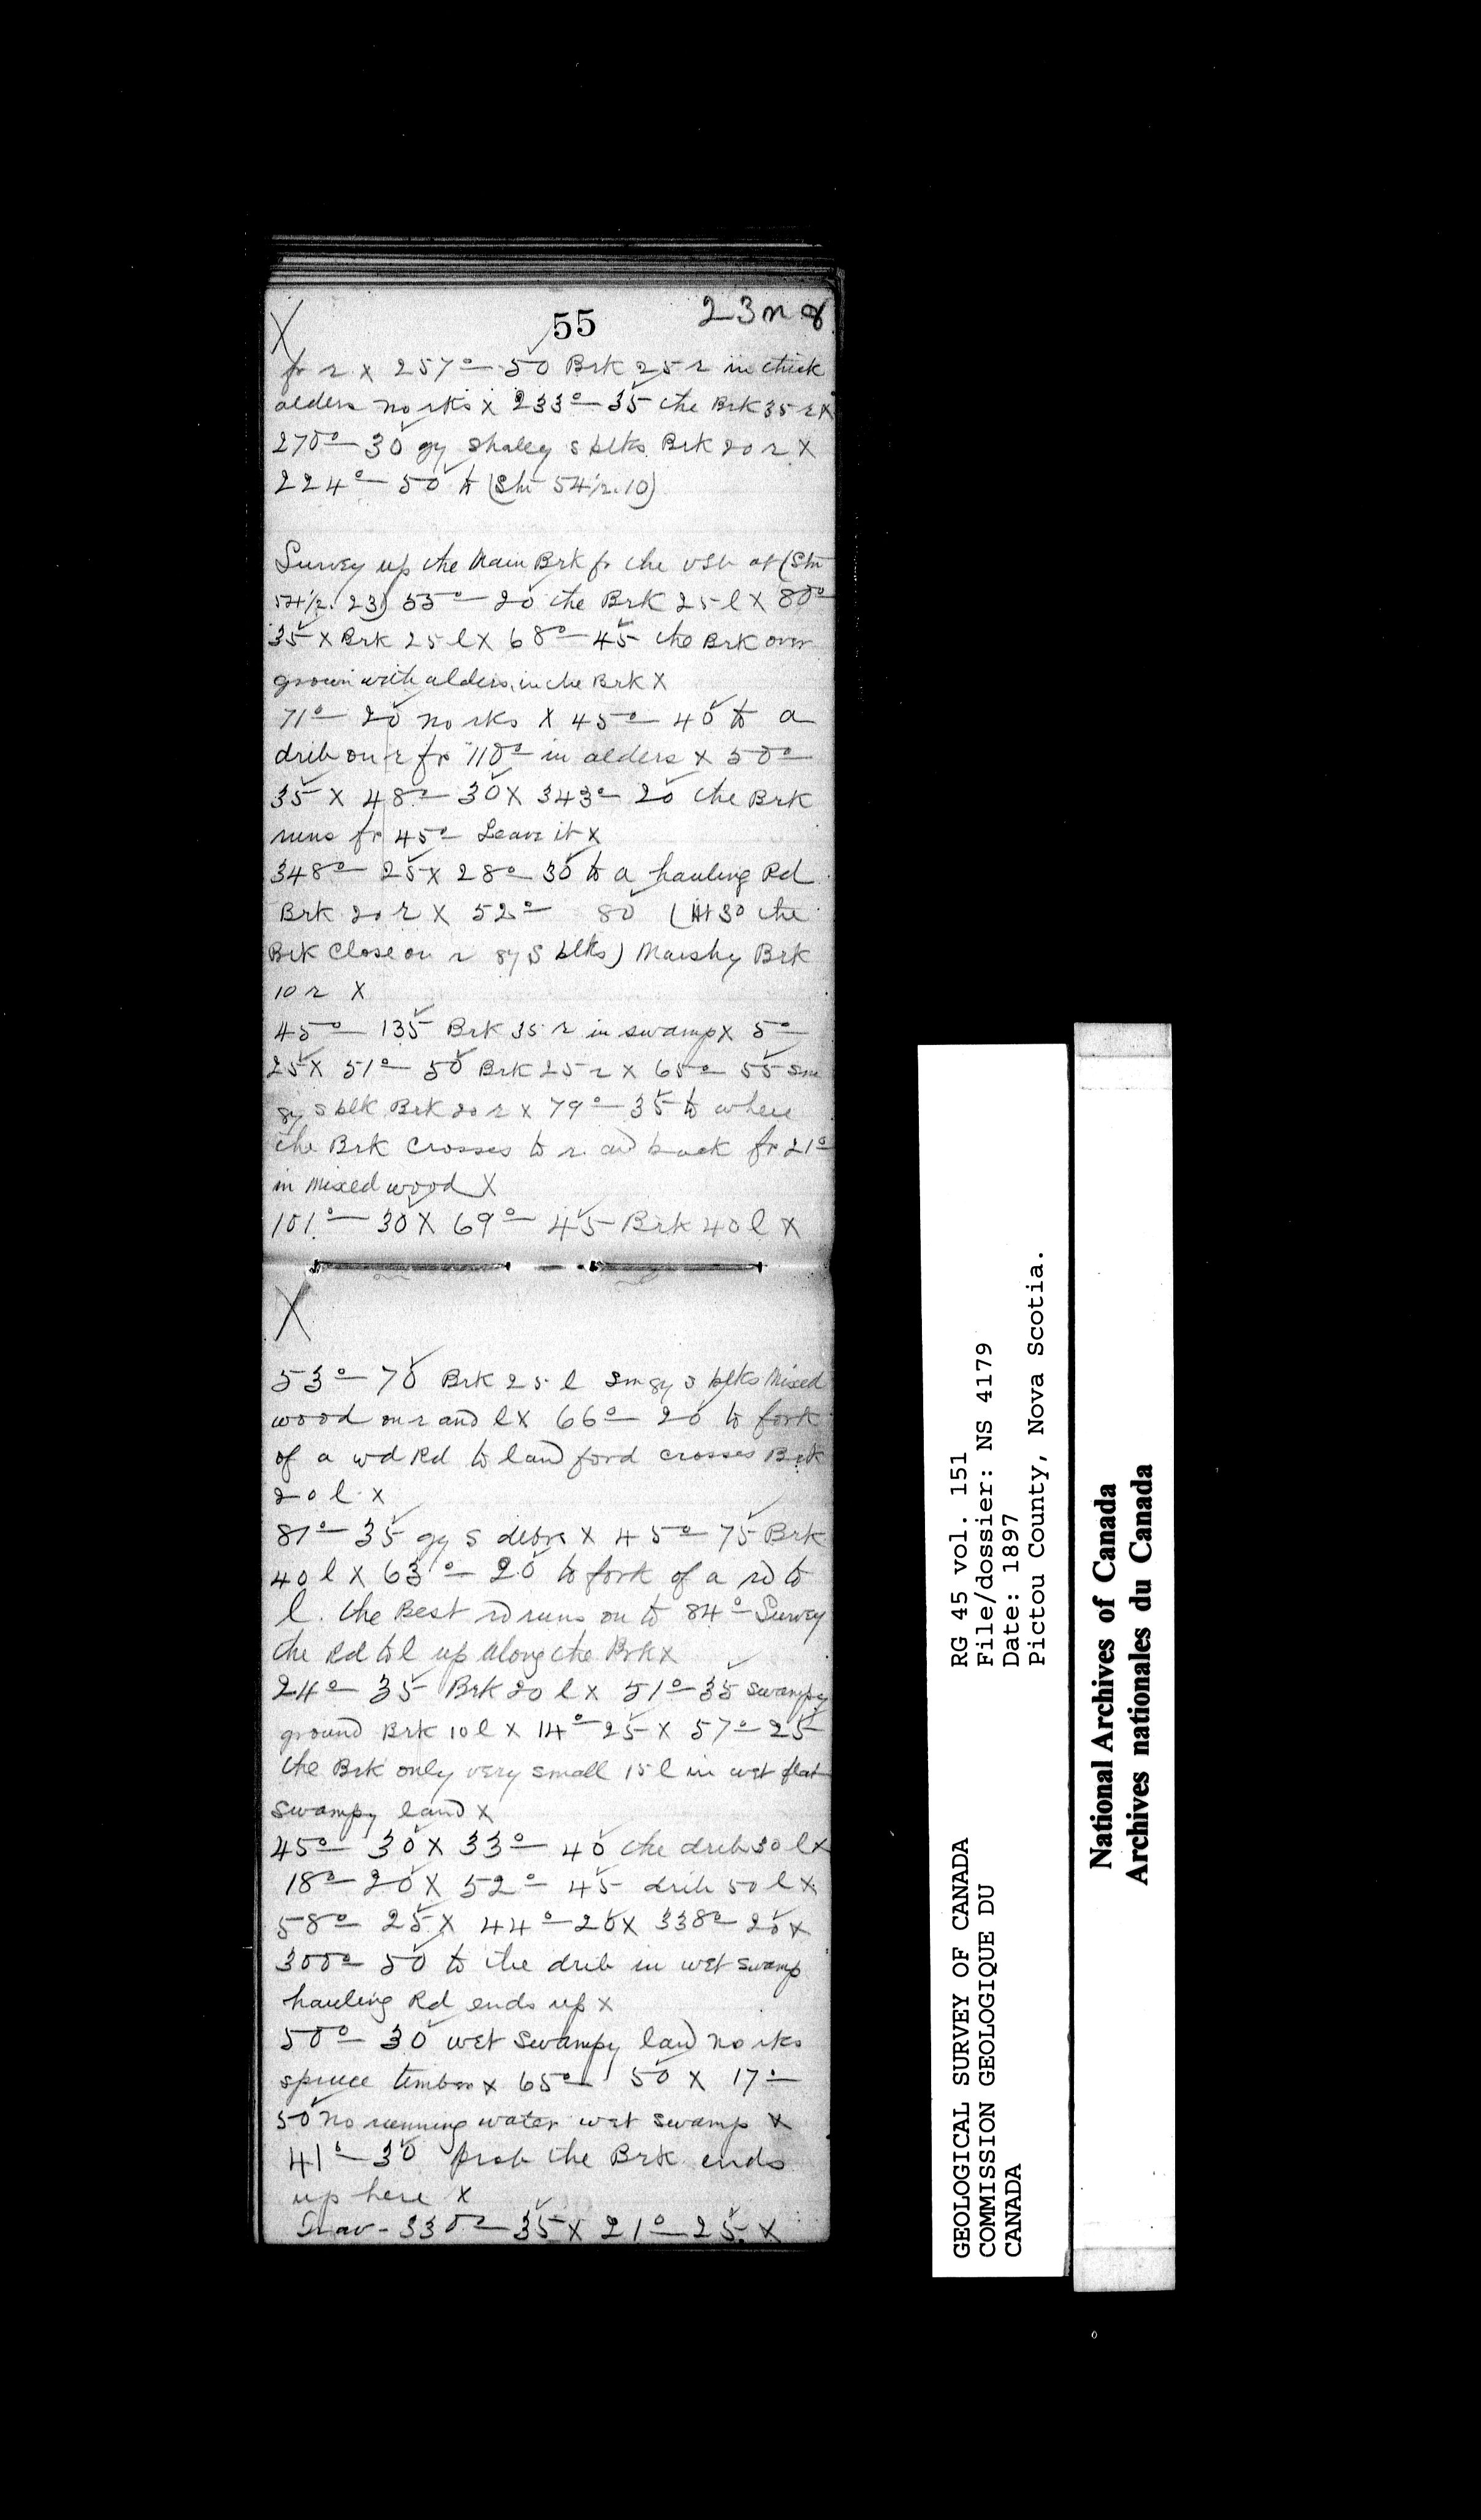 55
23 n 8
X
fr r X 257° — 50 Brk 25 r in thick
alders no rks X 233° — 35 the Brk 35 r X
270° — 30 gy shaley s blks Brk 20 r X
224° — 50 to (Stn 54½.10)
Survey up the Main Brk fr the at (Stn
54½. 23) 55° — 20 the Brk 25 l X 80°
35 X Brk 25 l X 68° — 45 the Brk over
grown with alders, in the Brk X
71° — 20 no rks X 45° — 40 to a
drib on r fr 110° in alders X 50°
35 X 48° — 30 X 343° — 20 the Brk
runs fr 45° Leave it X
348° — 25 X 28° — 30 to a hauling Rd
Brk 20 r X 52° — 80 (At 30 the
Brk close on r gy S blks) Marshy Brk
10 r X
45° — 135 Brk 35 r in swamp X 5°
25 X 51° — 50 Brk 25 r X 65° — 55 sm
gy s blk Brk 20 r X 79° — 35 to where
the Brk crosses to r and back fr 21°
in mixed wood X
101° — 30 X 69° — 45 Brk 40 l X
X
53° — 70 Brk 25 l sm gy s blks Mixed
wood on r and l X 66° — 20 to fork
of a wd Rd to l and ford crosses Brk
20 l X
81° — 35 gy s debris X 45° — 75 Brk
40 l X 63° — 20 to fork of a rd to
l. the Best rd runs on to 84° Survey
the Rd to l up along the Brk X
24° — 35 Brk 20 l X 51° — 35 swampy
ground Brk 10 l X 14° — 25 X 57° — 25
the Brk only very small 15 l in wet flat
swampy land X
45° — 30 X 33° — 40 the drib 30 l X
18° — 20 X 52° — 45 drib 50 l X
58° 25 X 44° — 20 X 338° — 20 X
300° 50 to the drib in wet swamp
hauling Rd ends up X
50° — 30 wet swampy land no rks
spruce timber X 65° — 50 X 17°
50 no running water wet swamp X
41° — 30 prob the Brk ends
up here X
Trav - 330° — 35 X 21° — 25 X
GEOLOGICAL SURVEY OF CANADA
COMMISSION GEOLOGIQUE DU
CANADA
RG 45 vol. 151
File/dossier: NS 4179
Date: 1897
Pictou County, Nova Scotia.
National Archives of Canada
Archives nationales du Canada